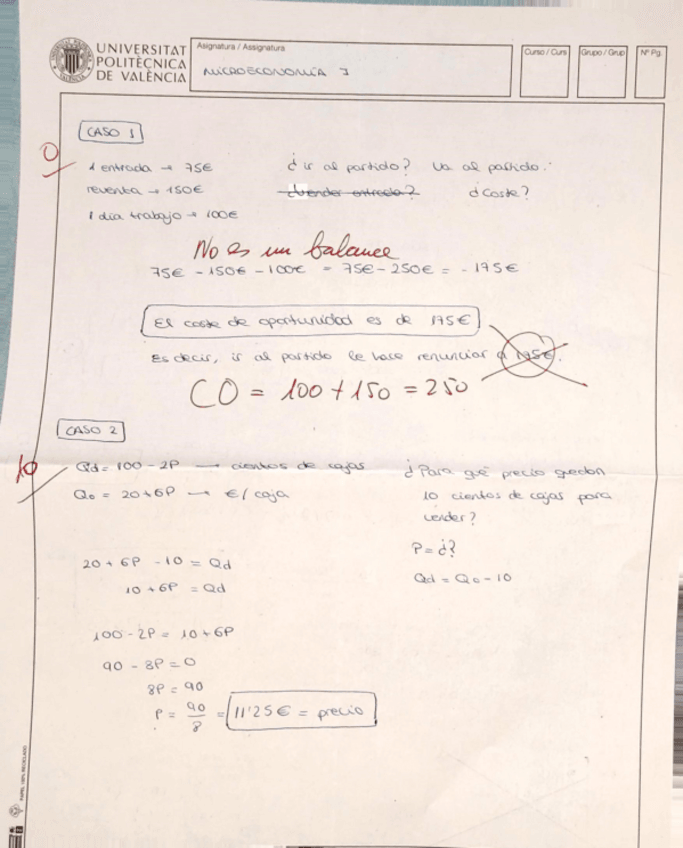 UNIVERSITAT
POLITÈCNICA
DE VALÈNCIA
Asignatura / Assignatura
MICROECONOMÍA I
Curso / Curs
Grupo / Grup
Nº Pg.
CASO 1
0
1 entrada → 75€
¿ir al partido? Va al partido.
reventa → 150€
¿vender entrada?
¿Coste?
1 día trabajo → 100€
No es un balance
75€ - 150€ - 100€ = 75€ - 250€ = - 175€
El coste de oportunidad es de 175€
Es decir, ir al partido le hace renunciar a 175€.
CO = 100 + 150 = 250
CASO 2
10
Qd = 100 - 2P → cientos de cajas
¿Para qué precio quedan
Qo = 20 + 6P → €/caja
10 cientos de cajas para
vender?
P = ¿?
20 + 6P - 10 = Qd
Qd = Qo - 10
10 + 6P = Qd
100 - 2P = 10 + 6P
90 - 8P = 0
8P = 90
P = 90/8 = 11'25€ = precio
PAPEL 100% RECICLADO